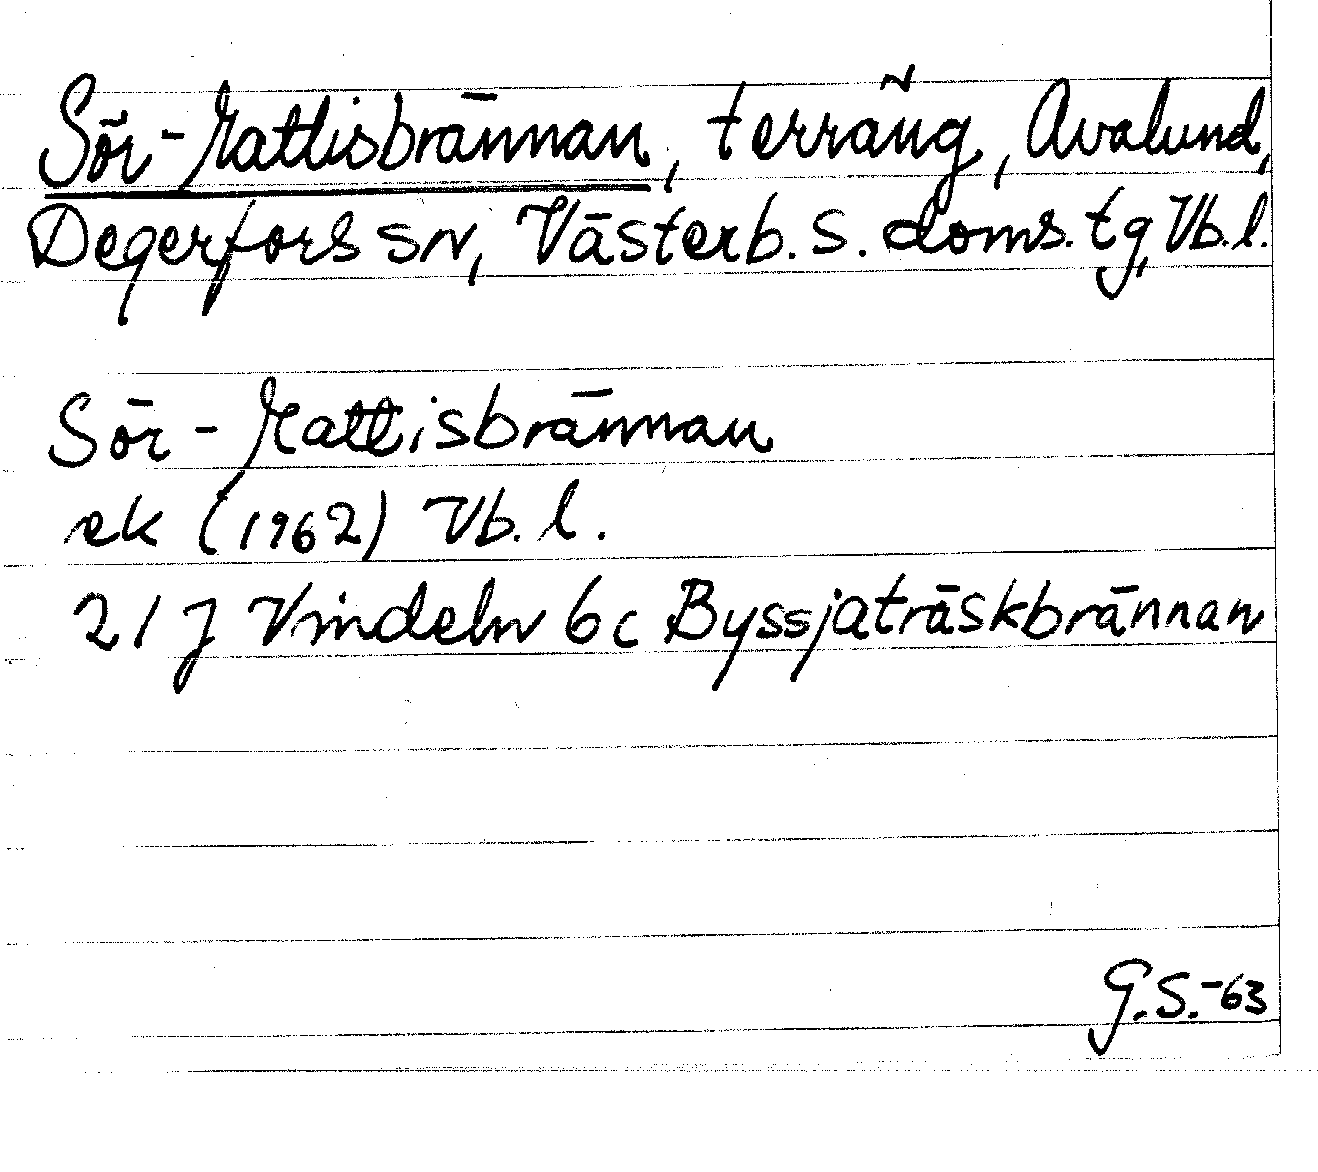 Sör-Mattisbrännan, terräng, Avalund,
Degerfors sn, Västerb. s. doms. tg, Vb. l.
Sör-Mattisbrännan
ek (1962) Vb. l.
21 J Vindeln 6c Byssjaträskbrännan
G.S.-63